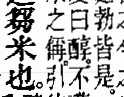 勃皆是
曰醇。不
之偁。引
米也。